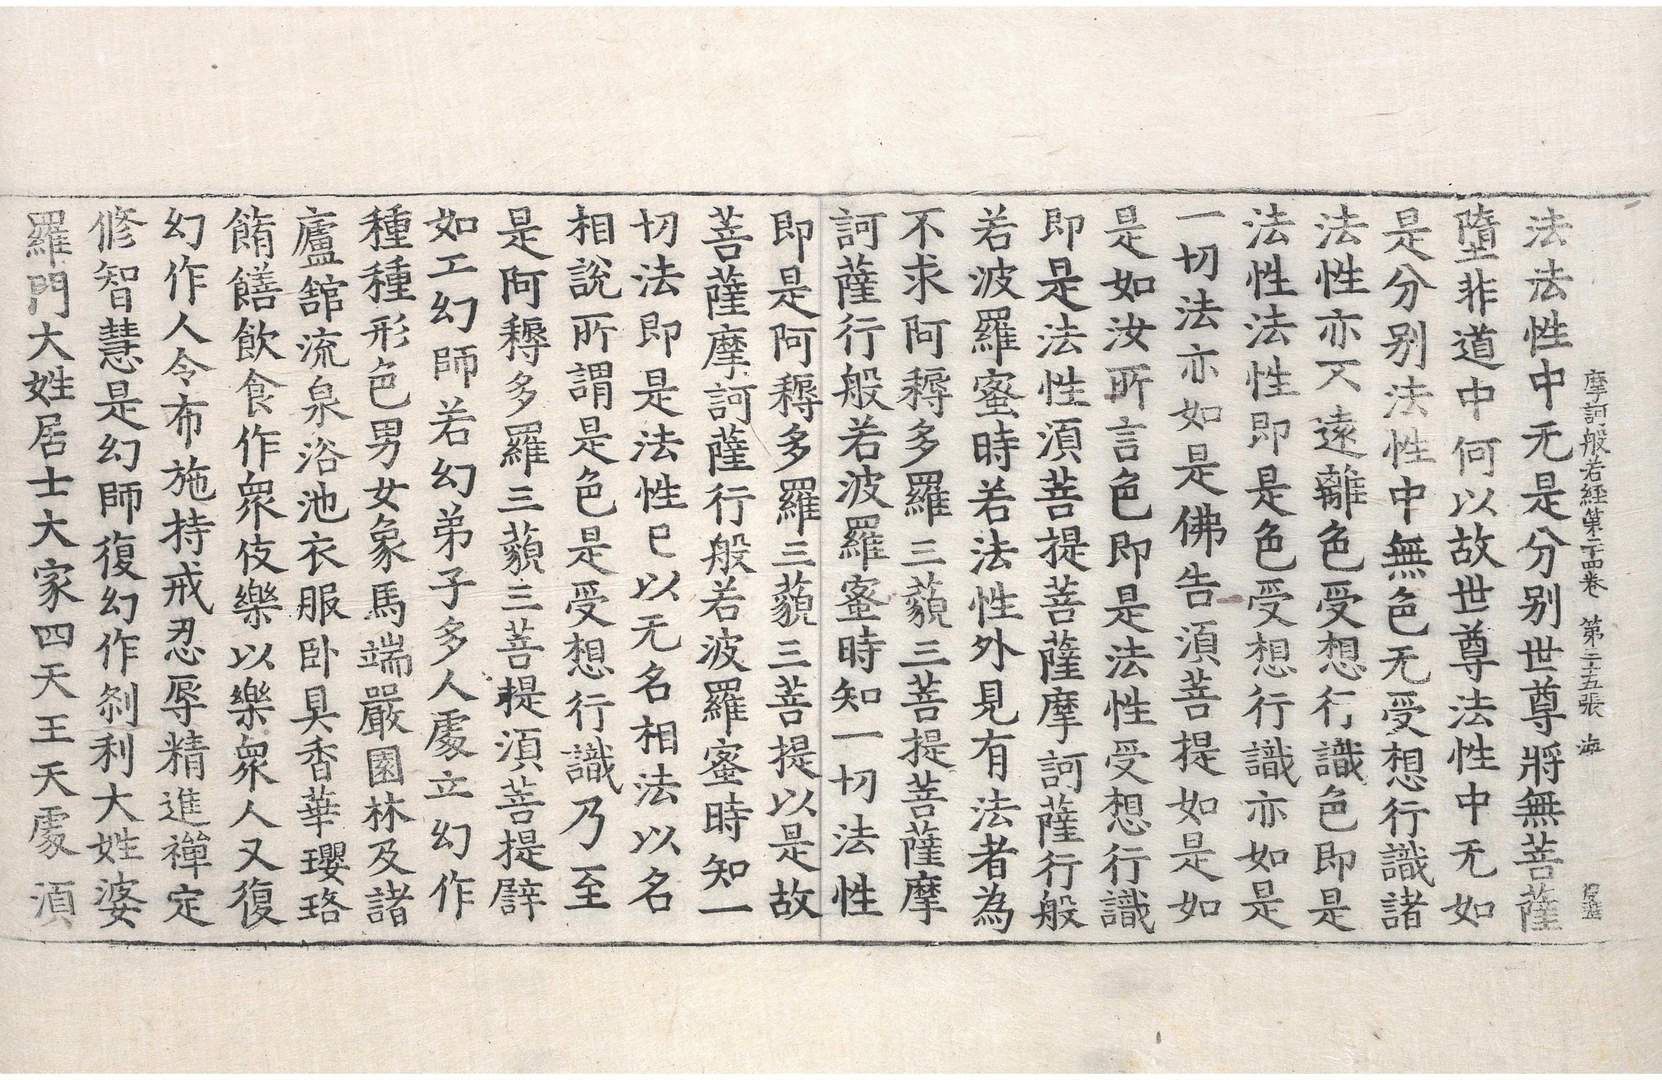 摩訶般若經第二十四卷 第三十五張 海
法法性中无是分别世尊將無菩薩
墮非道中何以故世尊法性中无如
是分别法性中無色无受想行識諸
法性亦不遠離色受想行識色即是
法性法性即是色受想行識亦如是
一切法亦如是佛告湏菩提如是如
是如汝所言色即是法性受想行識
即是法性湏菩提菩薩摩訶薩行般
若波羅蜜時若法性外見有法者為
不求阿耨多羅三藐三菩提菩薩摩
訶薩行般若波羅蜜時知一切法性
即是阿耨多羅三藐三菩提以是故
菩薩摩訶薩行般若波羅蜜時知一
切法即是法性已以无名相法以名
相說所謂是色是受想行識乃至
是阿耨多羅三藐三菩提湏菩提譬
如工幻師若幻弟子多人處立幻作
種種形色男女象馬端嚴園林及諸
廬舘流泉浴池衣服卧具香華瓔珞
餚饍飲食作衆伎樂以樂衆人又復
幻作人令布施持戒忍辱精進禪定
修智慧是幻師復幻作刹利大姓婆
羅門大姓居士大家四天王天處湏